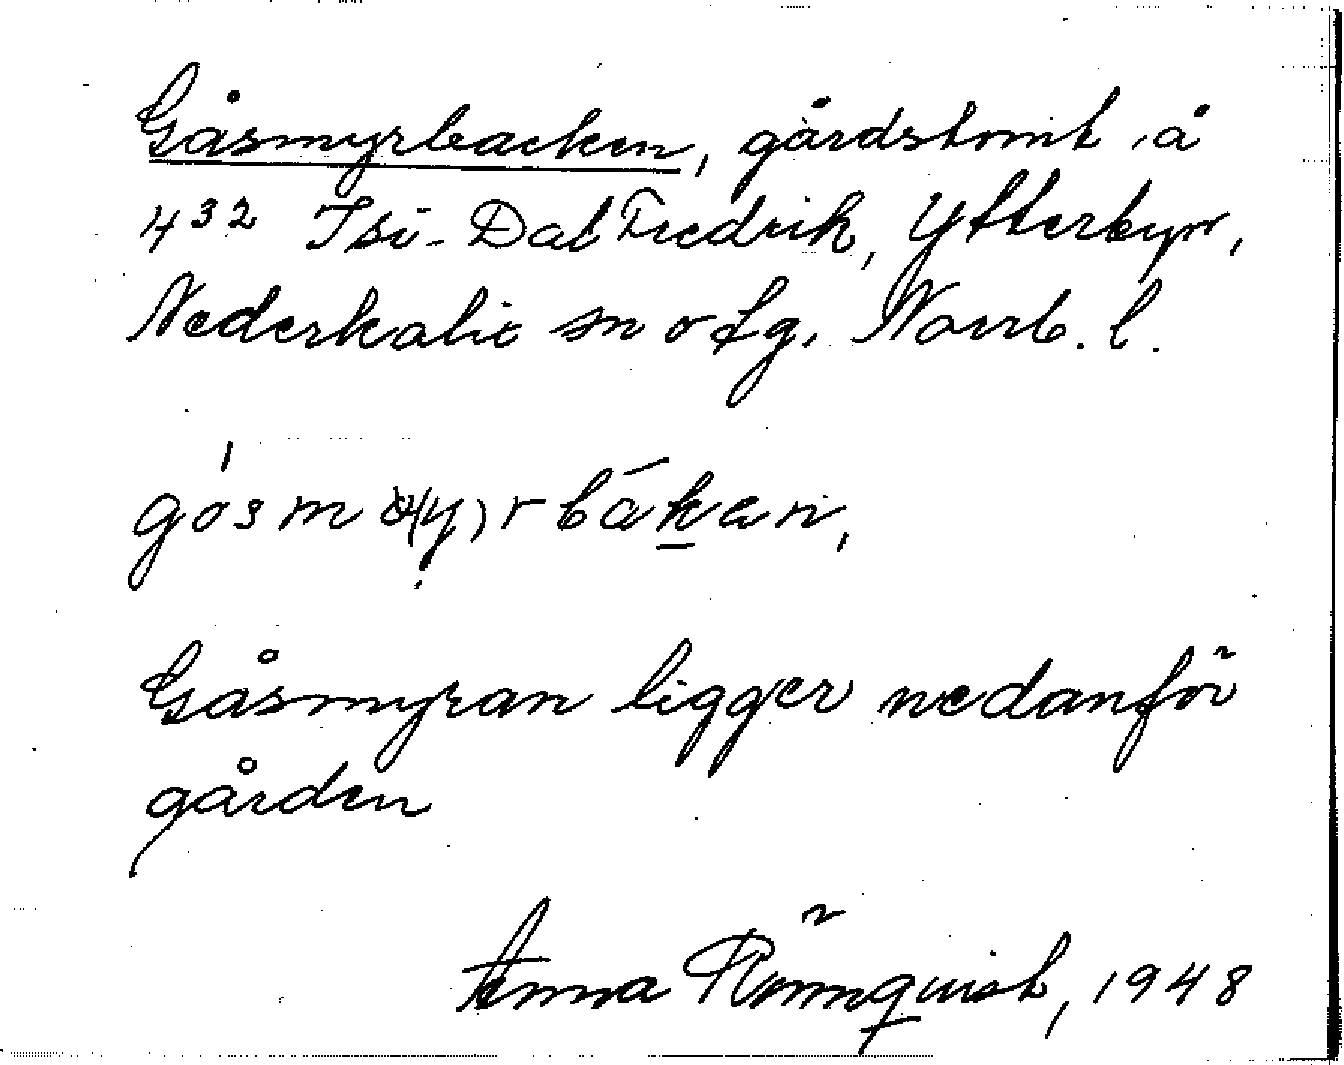 Gåsmyrbacken, gårdstomt å
4³² Isi-Dal Fredrik, Ytterbyn,
Nederkalix sn o fg, Norrb. l.
Gåsmyran ligger nedanför
gården
Anna Rönnquist, 1948